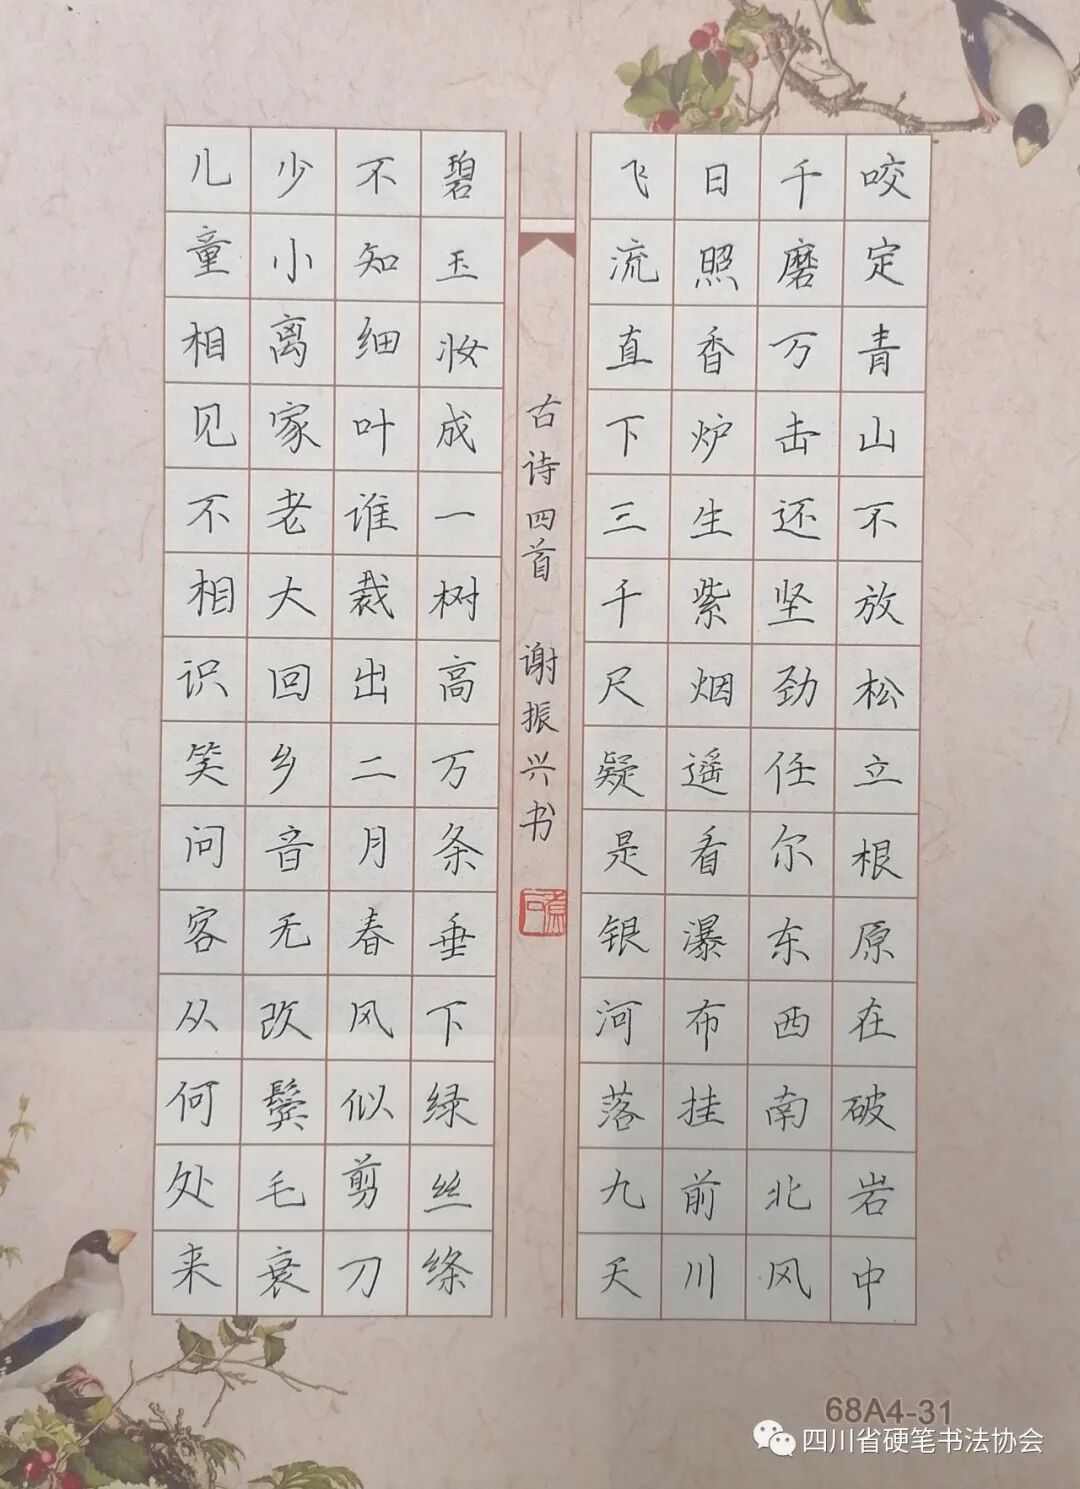 咬定青山不放松立根原在破岩中
千磨万击还坚劲任尔东西南北风
日照香炉生紫烟遥看瀑布挂前川
飞流直下三千尺疑是银河落九天
古诗四首 谢振兴书
碧玉妆成一树高万条垂下绿丝绦
不知细叶谁裁出二月春风似剪刀
少小离家老大回乡音无改鬓毛衰
儿童相见不相识笑问客从何处来
68A4-31
四川省硬笔书法协会